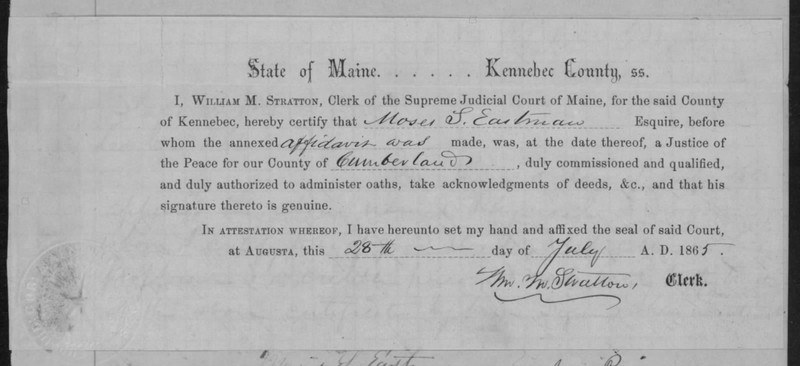 State of Maine. . . . . . Kennebec County, ss.
I, WILLIAM M. STRATTON, Clerk of the Supreme Judicial Court of Maine, for the said County
of Kennebec, hereby certify that Moses S. Eastman Esquire, before
whom the annexed affidavit was made, was, at the date thereof, a Justice of
the Peace for our County of Cumberland, duly commissioned and qualified,
and duly authorized to administer oaths, take acknowledgments of deeds, &c., and that his
signature thereto is genuine.
IN ATTESTATION WHEREOF, I have hereunto set my hand and affixed the seal of said Court,
at AUGUSTA, this 28th day of July A. D. 1865.
Wm. M. Stratton, Clerk.